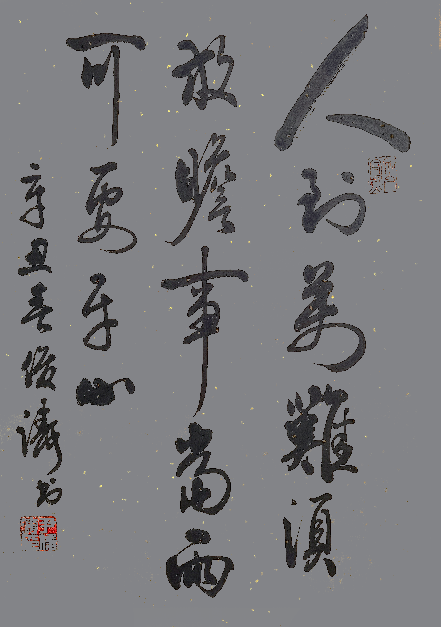 人到萬難須
放膽事當兩
可要平心
辛丑春俊濤书